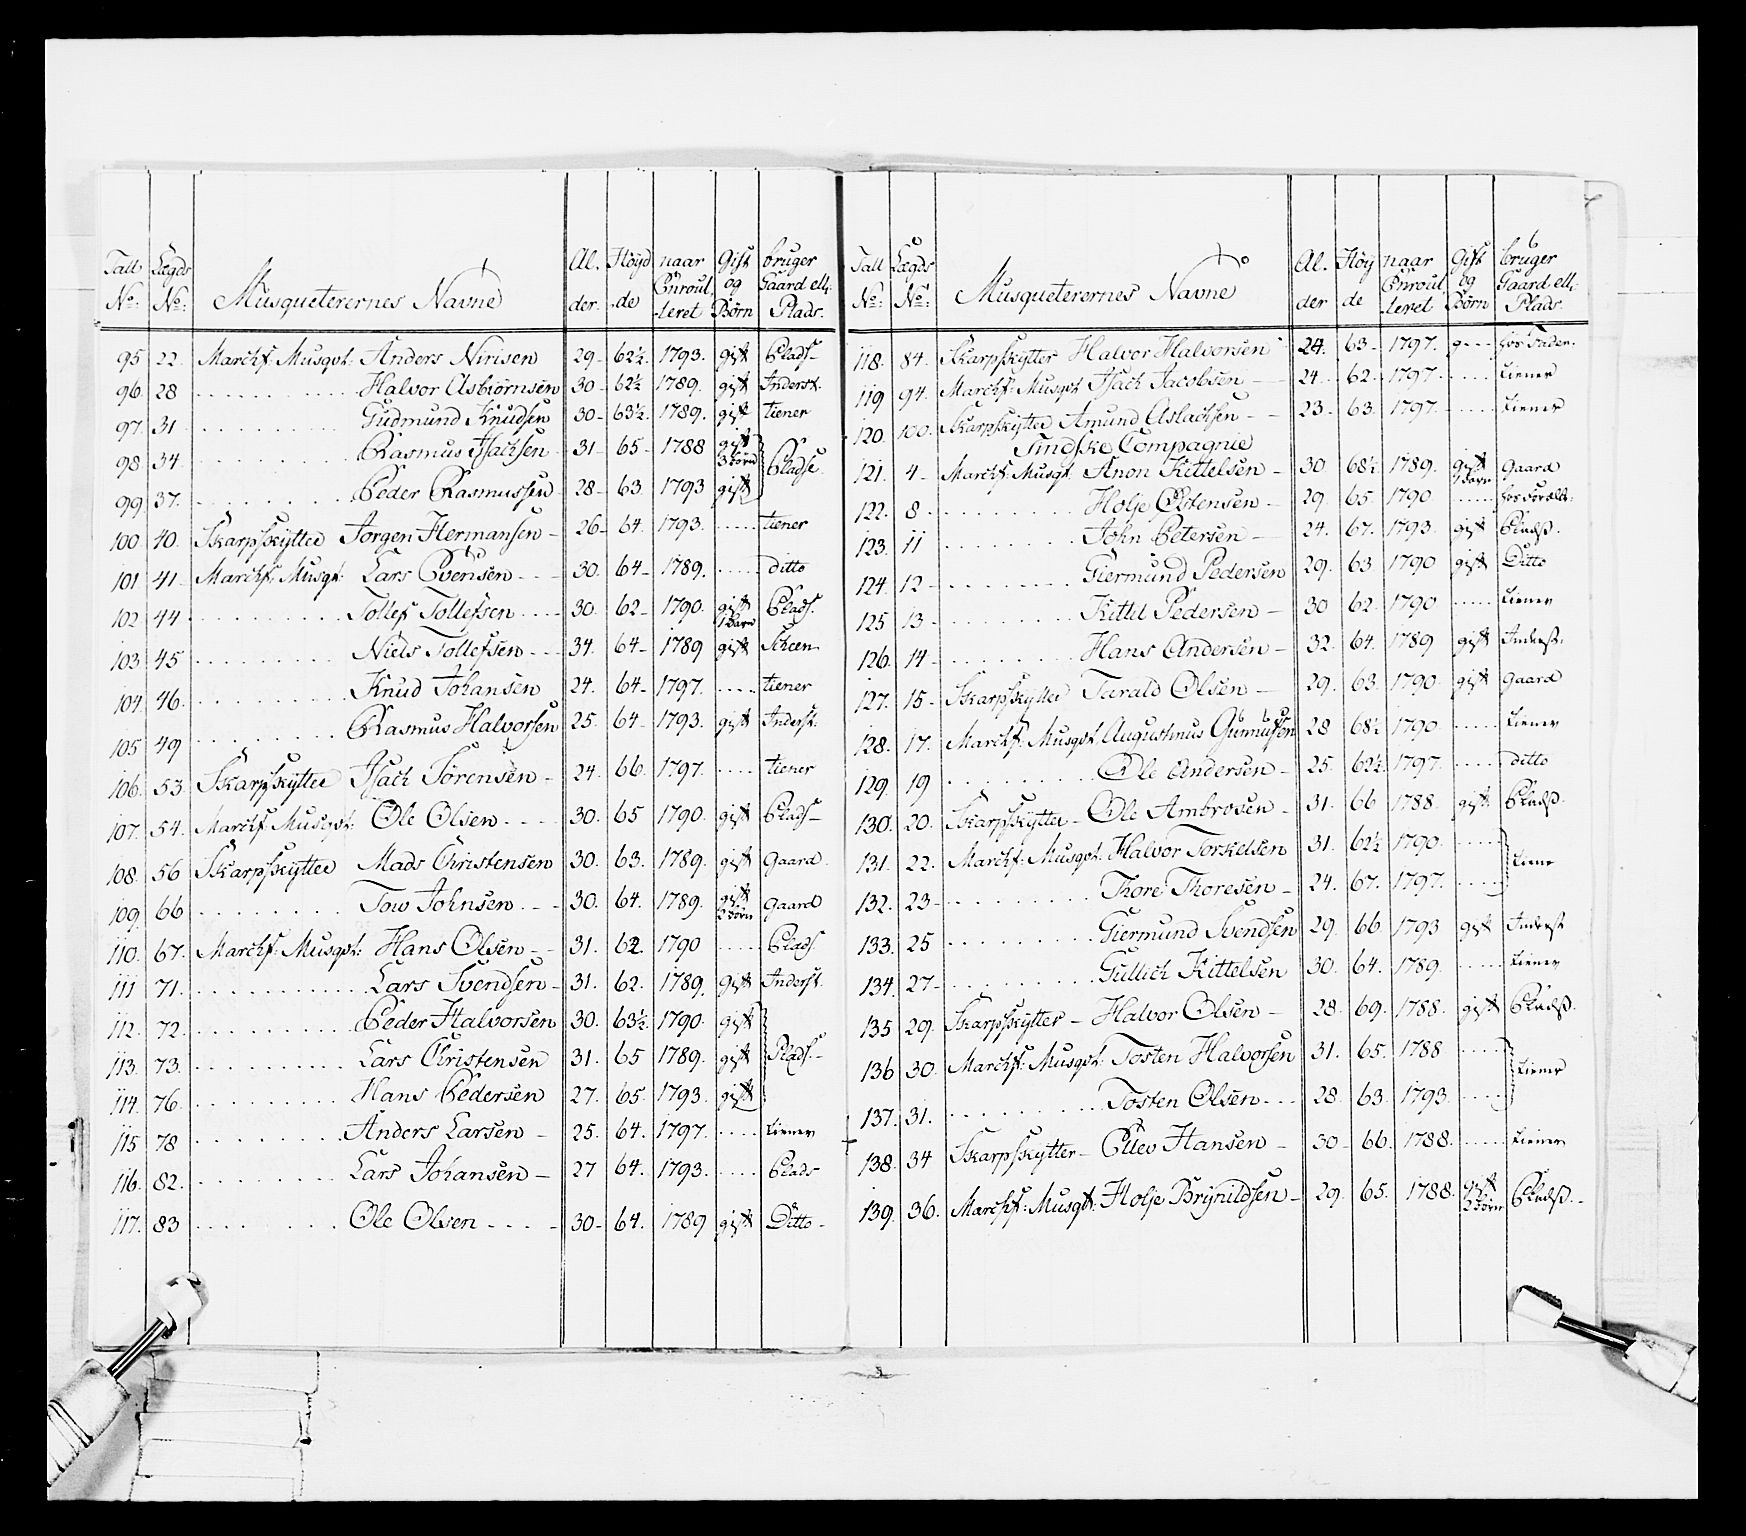 Tall No: Lægds No: Musqueterernes Navne Al. der. Høyd de naar Enroul leret Gift og Børn bruger Gaard ell: Plads.
95 22. Marchf: Musqvt. Anders Nirisen 29 62½. 1793. gift Plads
96. 28 Halvor Asbiörnsen 30 62½ 1789. gift Inderst.
97. 31 Gudmund Knudsen 30 63½. 1789. gift tiener
98 34. Rasmus Isachsen 31 65 1788 gift 3 börn Pladse
99. 37. Peder Rasmussen 28 63. 1793 gift
100 40. Skarpskytter Jörgen Hermansen 26 64. 1793. tiener
101 41 Marchf: Musqt: Lars Evensen 30. 64 1789. ditto
102. 44 Tollef Tollefsen 30. 62 1790. gift 1 Barn Plads.
103. 45 Niels Tollefsen 34. 64 1789 gift Skeen
104. 46. Knud Johansen 24. 64 1797. tiener
105 49 Rasmus Halvorsen 25. 64 1793. gift Inderst.
106. 53. Skarpskytter Isach Sörensen 24. 66. 1797. tiener
107. 54. Marchf Musqvt: Ole Olsen 30. 65 1790. gift Plads
108. 56 Skarpskytter Mads Christensen 30. 63. 1789. gift Gaard.
109. 66 Tow Johnsen 30. 64. 1789. gift 2 börn Gaard
110. 67. Marchf: Musqvt: Hans Olsen 31. 62 1790 Plads
111 71. Lars Svendsen 31. 62. 1789. gift Inderst.
112. 72. Peder Halvorsen 30. 63½. 1790. gift
113. 73. Lars Christensen 31. 65 1789. gift Plads.
114. 76. Hans Pedersen 27. 65. 1793. gift
115 78 Anders Larsen 25. 64. 1797. tiener
116. 82. Lars Johansen 27 64. 1793. Plads
117. 83 Ole Olsen 30 64. 1789 gift Ditto
Tall No: Lægds No: Musqueterernes Navne Al. der Høy de naar Enroul leret Gift og Børn bruger Gaard ell: Plads.
118. 84. Skarpskytter Halvor Halvorsen 24. 63 1797. g hos Fader.
119 94. Marchf: Musqvt Isach Jacobsen 24. 62. 1797 tiener
120. 100. Skarpskytter Amund Aslachsen 23. 63. 1797. tiener
Tindske Compagnie
121. 4 Marchf: Musqt. Anon Kittelsen 30 68½. 1789. gift 1 Barn Gaard
122. 8 Holje Estensen 29. 65. 1790 hos Foræld:
123. 11 John Petersen 24. 67. 1793. gift Pladß.
124. 12 Giermund Pedersen 29. 63 1790 gift Ditto
125 13 Kittil Pedersen 30 62. 1790 tiener
126. 14 Hans Andersen 32. 64. 1789 gift Inderst.
127. 15 Skarpskytter Tarald Olsen 29. 63. 1790 gift Gaard
128. 17. Marchf: Musqvt. Augustinus Gunnufsen 28 68½ 1790 tiener
129. 19 Ole Andersen 25. 62½. 1797. ditto
130. 20. Skarpskytter Ole Ambrosen 31. 66 1788. gift Pladß.
131. 22. Marchf: Musqvt. Halvor Torkelsen 31. 62½ 1790. tiener
132. 23 Thore Thoresen 24. 67. 1797.
133. 25 Giermund Svendsen 29. 66. 1793 gift Inderst
134. 27 Gullich Kittelsen 30. 64. 1789. tiener
135 29. Skarpskytter Halvor Olsen 28. 69. 1788. gift Pladß.
136 30. Marchf: Musqvt: Tosten Halvorsen 31. 65. 1788 tiener
137. 31. Tosten Olsen 28. 63. 1793.
138. 34 Skarpskytter Ellev Hansen 30 66. 1788. tiener
139. 36. Marchf: Musqvt: Holje Brynildsen 29. 65. 1788. gift 2 börn Pladß.